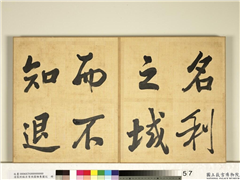 名利
之域
而不
知退
57
國立故宮博物院